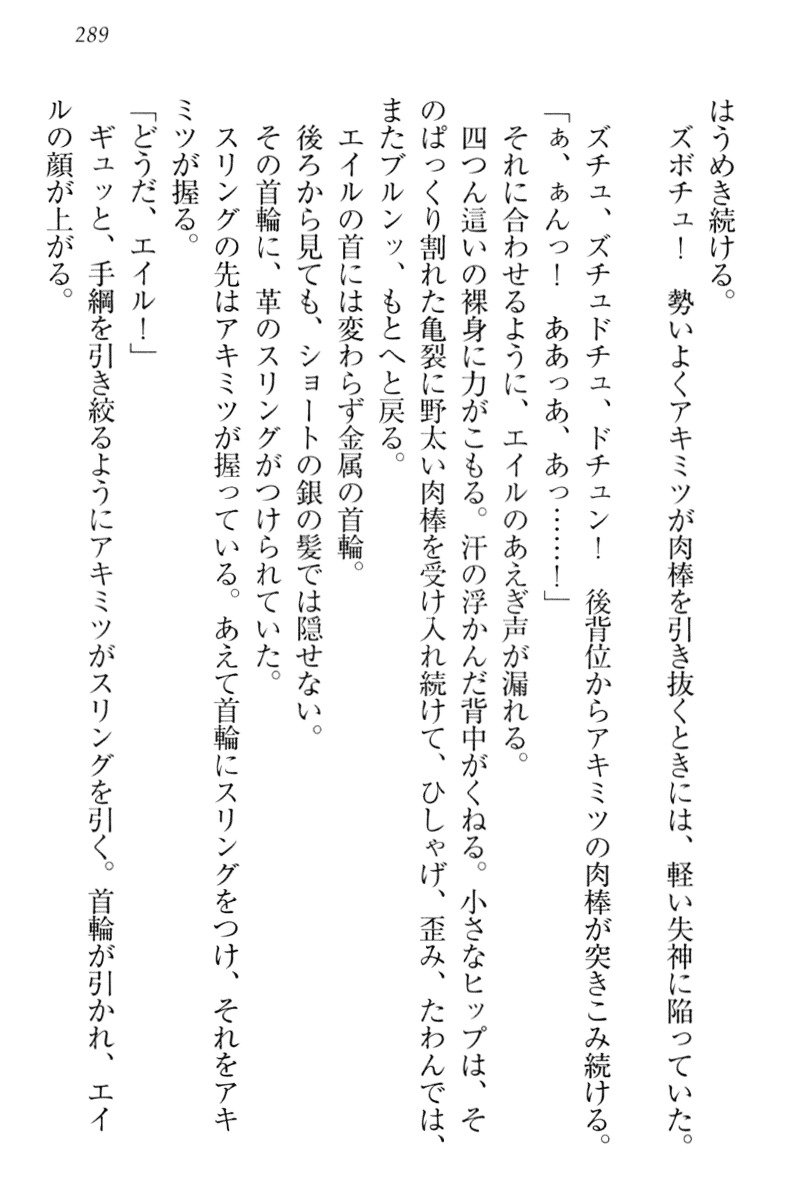 289
はうめき続ける。
ズボチュ！　勢いよくアキミツが肉棒を引き抜くときには、軽い失神に陥っていた。
ズチュ、ズチュドチュ、ドチュン！　後背位からアキミツの肉棒が突きこみ続ける。
「ぁ、ぁんっ！　ああっあ、あっ……！」
それに合わせるように、エイルのあえぎ声が漏れる。
四つん這いの裸身に力がこもる。汗の浮かんだ背中がくねる。小さなヒップは、そ
のぱっくり割れた亀裂に野太い肉棒を受け入れ続けて、ひしゃげ、歪み、たわんでは、
またブルンッ、もとへと戻る。
エイルの首には変わらず金属の首輪。
後ろから見ても、ショートの銀の髪では隠せない。
その首輪に、革のスリングがつけられていた。
スリングの先はアキミツが握っている。あえて首輪にスリングをつけ、それをアキ
ミツが握る。
「どうだ、エイル！」
ギュッと、手綱を引き絞るようにアキミツがスリングを引く。首輪が引かれ、エイ
ルの顔が上がる。